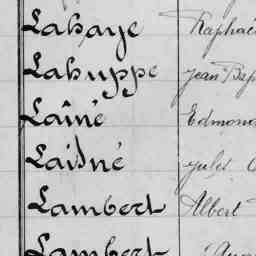 Lahaye Raphaë
Lahuppe Jean Bap
Lainé Edmond
Laisné Jules
Lambert Albert
Lambert